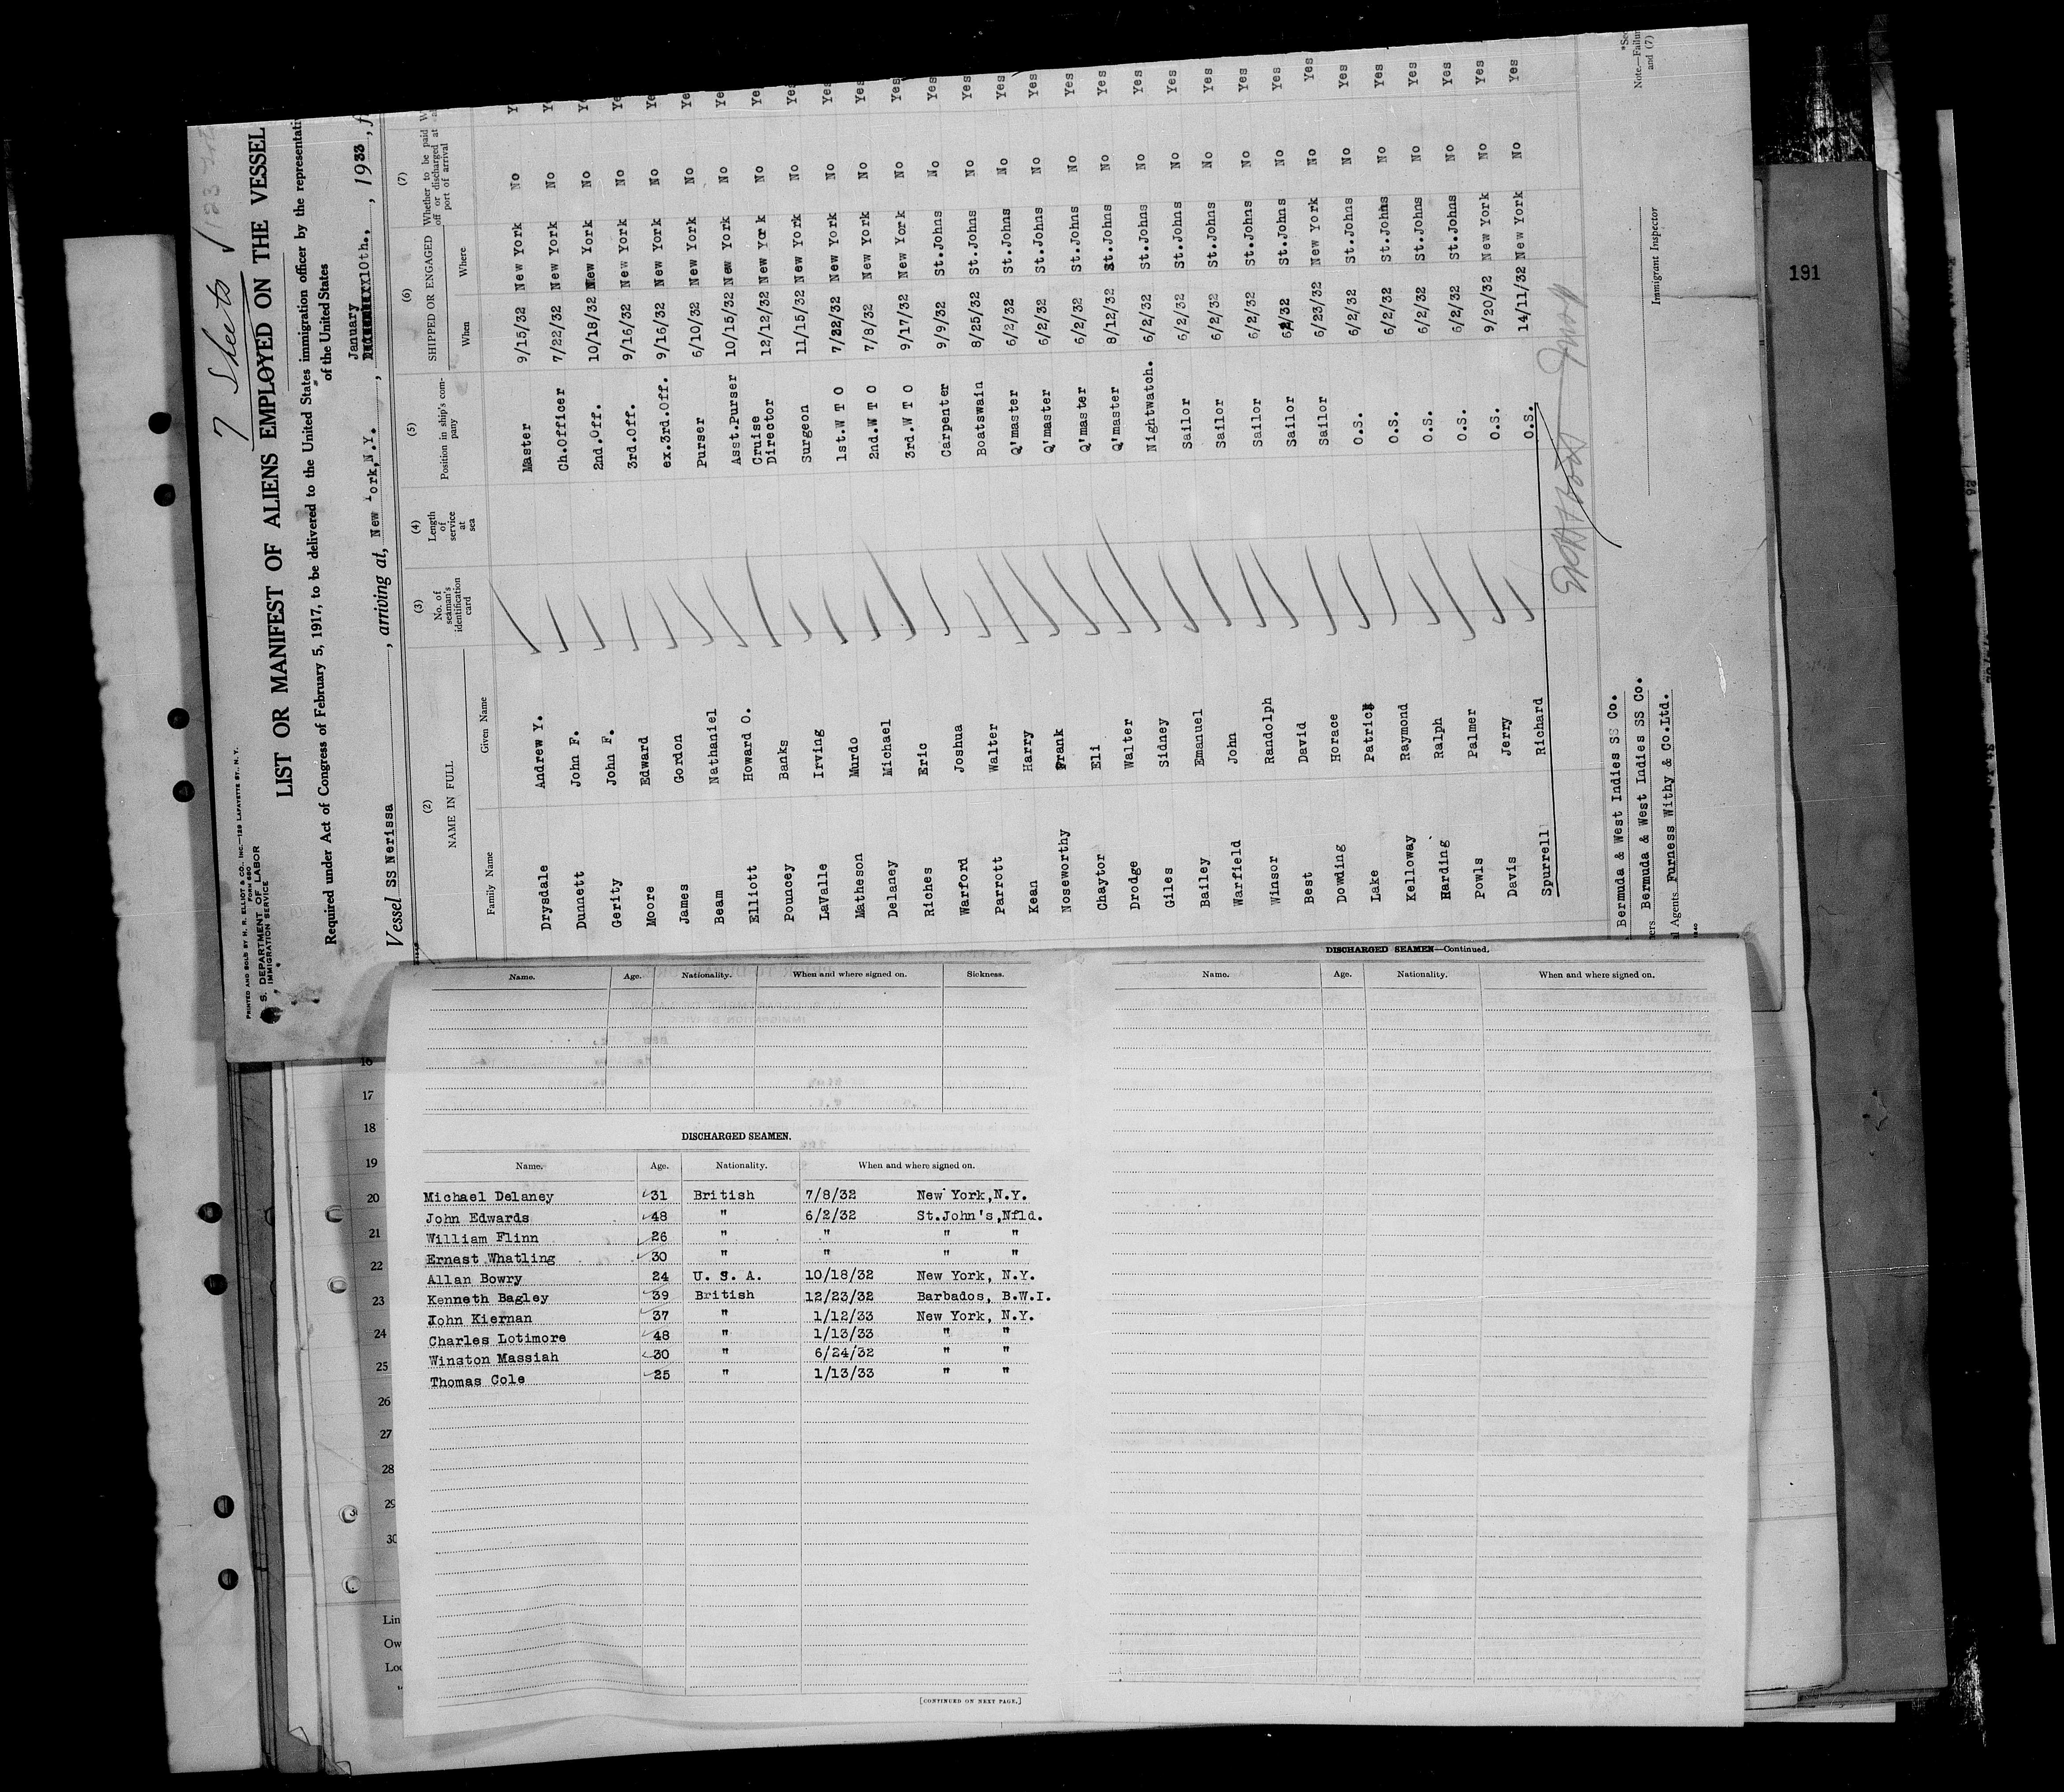 7 Sheets
PRINTED AND SOLD BY H. R. ELLIOT & CO., INC.—129 LAFAYETTE ST., N. Y.
FORM 680
S. DEPARTMENT OF LABOR
IMMIGRATION SERVICE
LIST OR MANIFEST OF ALIENS EMPLOYED ON THE VESSEL
Required under Act of Congress of February 5, 1917, to be delivered to the United States immigration officer by the representati
of the United States
January
Vessel SS Nerissa , arriving at, New York,N.Y. , 10th., , 1933, f
(2) (3) (4) (5) (6) (7)
NAME IN FULL No. of seaman's identification card Length of service at sea Position in ship's company SHIPPED OR ENGAGED Whether to be paid off or discharged at port of arrival
Family Name Given Name When Where
Drysdale Andrew Y. Master 9/15/32 New York No Ye
Dunnett John F. Ch.Officer 7/22/32 New York No Ye
Gerity John F. 2nd.Off. 10/18/32 New York No Ye
Moore Edward 3rd.Off. 9/16/32 New York No Ye
James Gordon ex.3rd.Off. 9/16/32 New York No Ye
Beam Nathaniel Purser 6/10/32 New York No Ye
Elliott Howard O. Asst.Purser 10/15/32 New York No Yes
Pouncey Banks Cruise Director 12/12/32 New York No Yes
LaValle Irving Surgeon 11/15/32 New York No Yes
Matheson Murdo 1st.W T O 7/22/32 New York No Yes
Delaney Michael 2nd.W T O 7/8/32 New York No Yes
Riches Eric 3rd.W T O 9/17/32 New York No Yes
Warford Joshua Carpenter 9/9/32 St.Johns No Yes
Parrott Walter Boatswain 8/25/32 St.Johns No Yes
Kean Harry Q'master 6/2/32 St.Johns No Yes
Noseworthy Frank Q'master 6/2/32 St.Johns No Yes
Chaytor Eli Q'master 6/2/32 St.Johns No Yes
Drodge Walter Q'master 8/12/32 St.Johns No Yes
Giles Sidney Nightwatch. 6/2/32 St.Johns No Yes
Bailey Emanuel Sailor 6/2/32 St.Johns No Yes
Warfield John Sailor 6/2/32 St.Johns No Yes
Winsor Randolph Sailor 6/2/32 St.Johns No Yes
Best David Sailor 6/2/32 St.Johns No Yes
Dowding Horace Sailor 6/23/32 New York No Yes
Lake Patrick O.S. 6/2/32 St.Johns No Yes
Kelloway Raymond O.S. 6/2/32 St.Johns No Yes
Harding Ralph O.S. 6/2/32 St.Johns No Yes
Powls Palmer O.S. 6/2/32 St.Johns No Yes
Davis Jerry O.S. 9/20/32 New York No Yes
Spurrell Richard O.S. 14/11/32 New York No Yes
Bermuda & West Indies SS Co.
ners Bermuda & West Indies SS Co.
l Agents Furness Withy & Co.Ltd.
Immigrant Inspector
*See
Note.—Failur
and (7)
191
Name. Age. Nationality. When and where signed on. Sickness.
DISCHARGED SEAMEN.
Name. Age. Nationality. When and where signed on.
Michael Delaney 31 British 7/8/32 New York,N.Y.
John Edwards 48 " 6/2/32 St.John's,Nfld.
William Flinn 26 " " " "
Ernest Whatling 30 " " " "
Allan Bowry 24 U. S. A. 10/18/32 New York, N.Y.
Kenneth Bagley 39 British 12/23/32 Barbados, B.W.I.
John Kiernan 37 " 1/12/33 New York, N.Y.
Charles Lotimore 48 " 1/13/33 " "
Winston Massiah 30 " 6/24/32 " "
Thomas Cole 25 " 1/13/33 " "
[CONTINUED ON NEXT PAGE.]
DISCHARGED SEAMEN—Continued.
Name. Age. Nationality. When and where signed on.
16
17
18
19
20
21
22
23
24
25
26
27
28
29
30
Lin
Ow
Loc